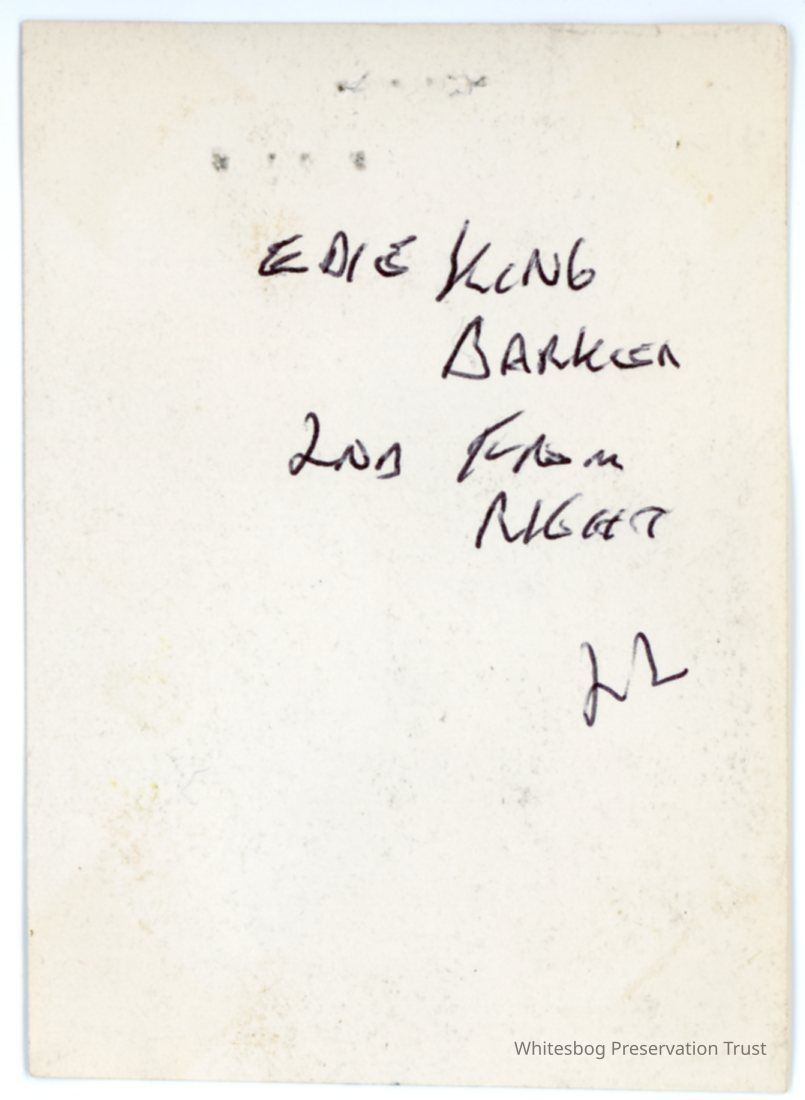 EDIE KING
BARKER
2ND FROM
RIGHT
Whitesbog Preservation Trust